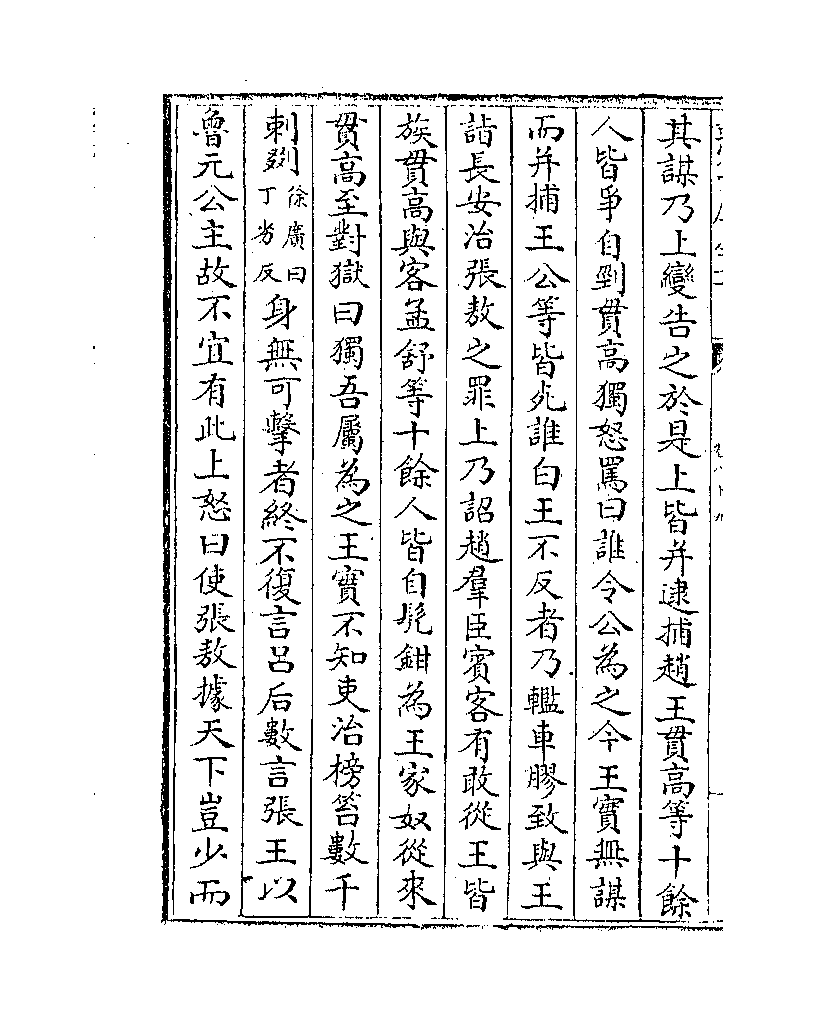 其謀乃上變告之於是上皆并逮捕趙王貫高等十餘
人皆爭自剄貫高獨怒罵曰誰令公為之今王實無謀
而并捕王公等皆死誰白王不反者乃轞車膠致與王
詣長安治張敖之罪上乃詔趙羣臣賓客有敢從王皆
族貫高與客孟舒等十餘人皆自髠鉗為王家奴從來
貫高至對獄曰獨吾屬為之王實不知吏治榜笞數千
刺剟徐廣曰丁劣反身無可擊者終不復言呂后數言張王以
魯元公主故不宜有此上怒曰使張敖據天下豈少而